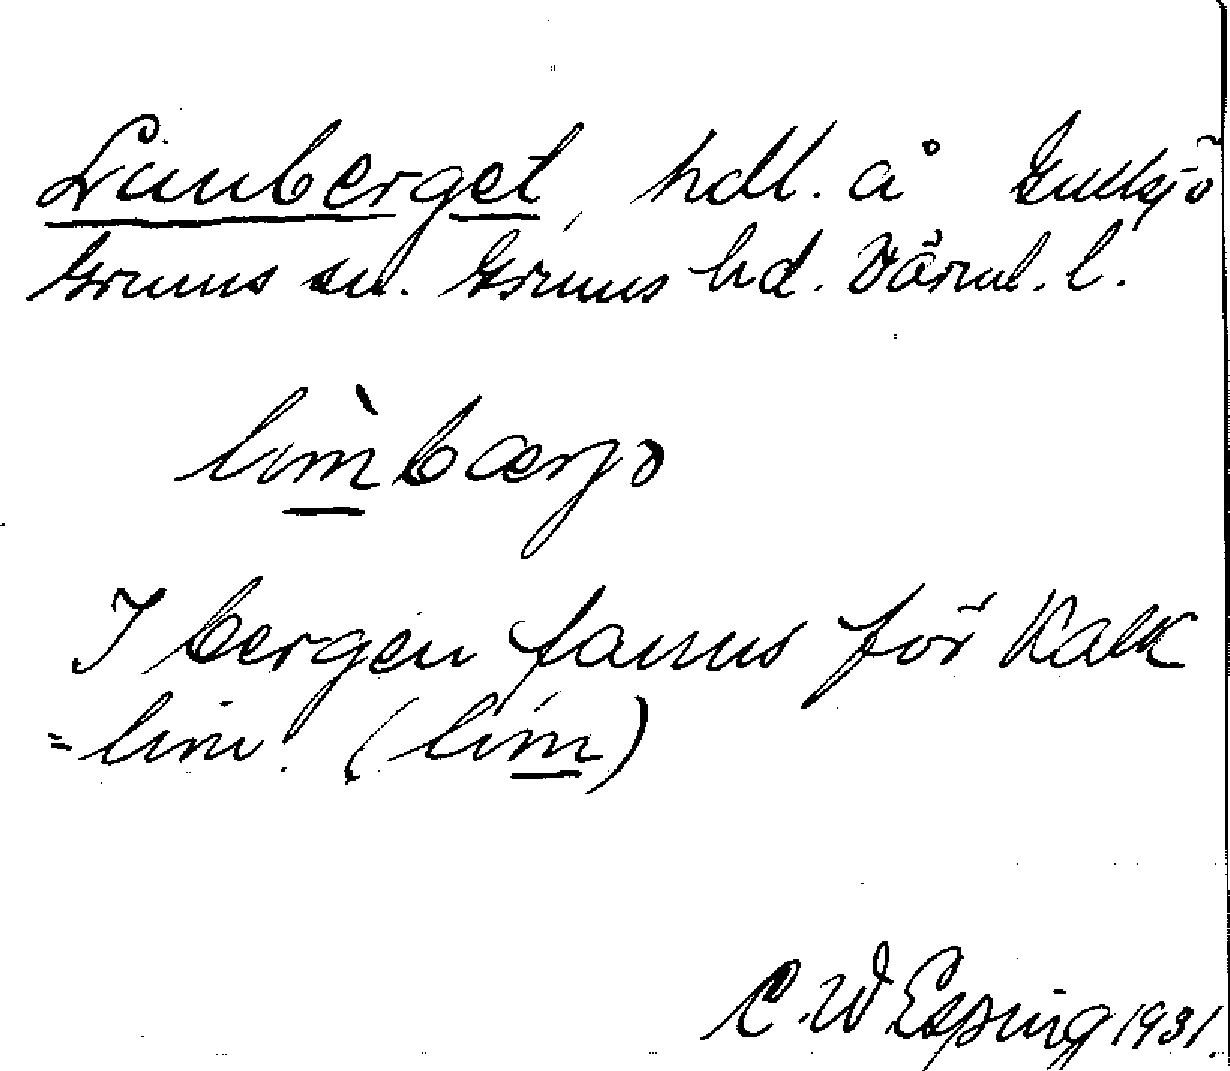 Limberget, hdl. å Gullsjö
Grums sn. Grums hd. Värml. l.
lìmbærjə
I bergen fanns förr Kalk
=lim. (lim)
C. W Esping 1931.